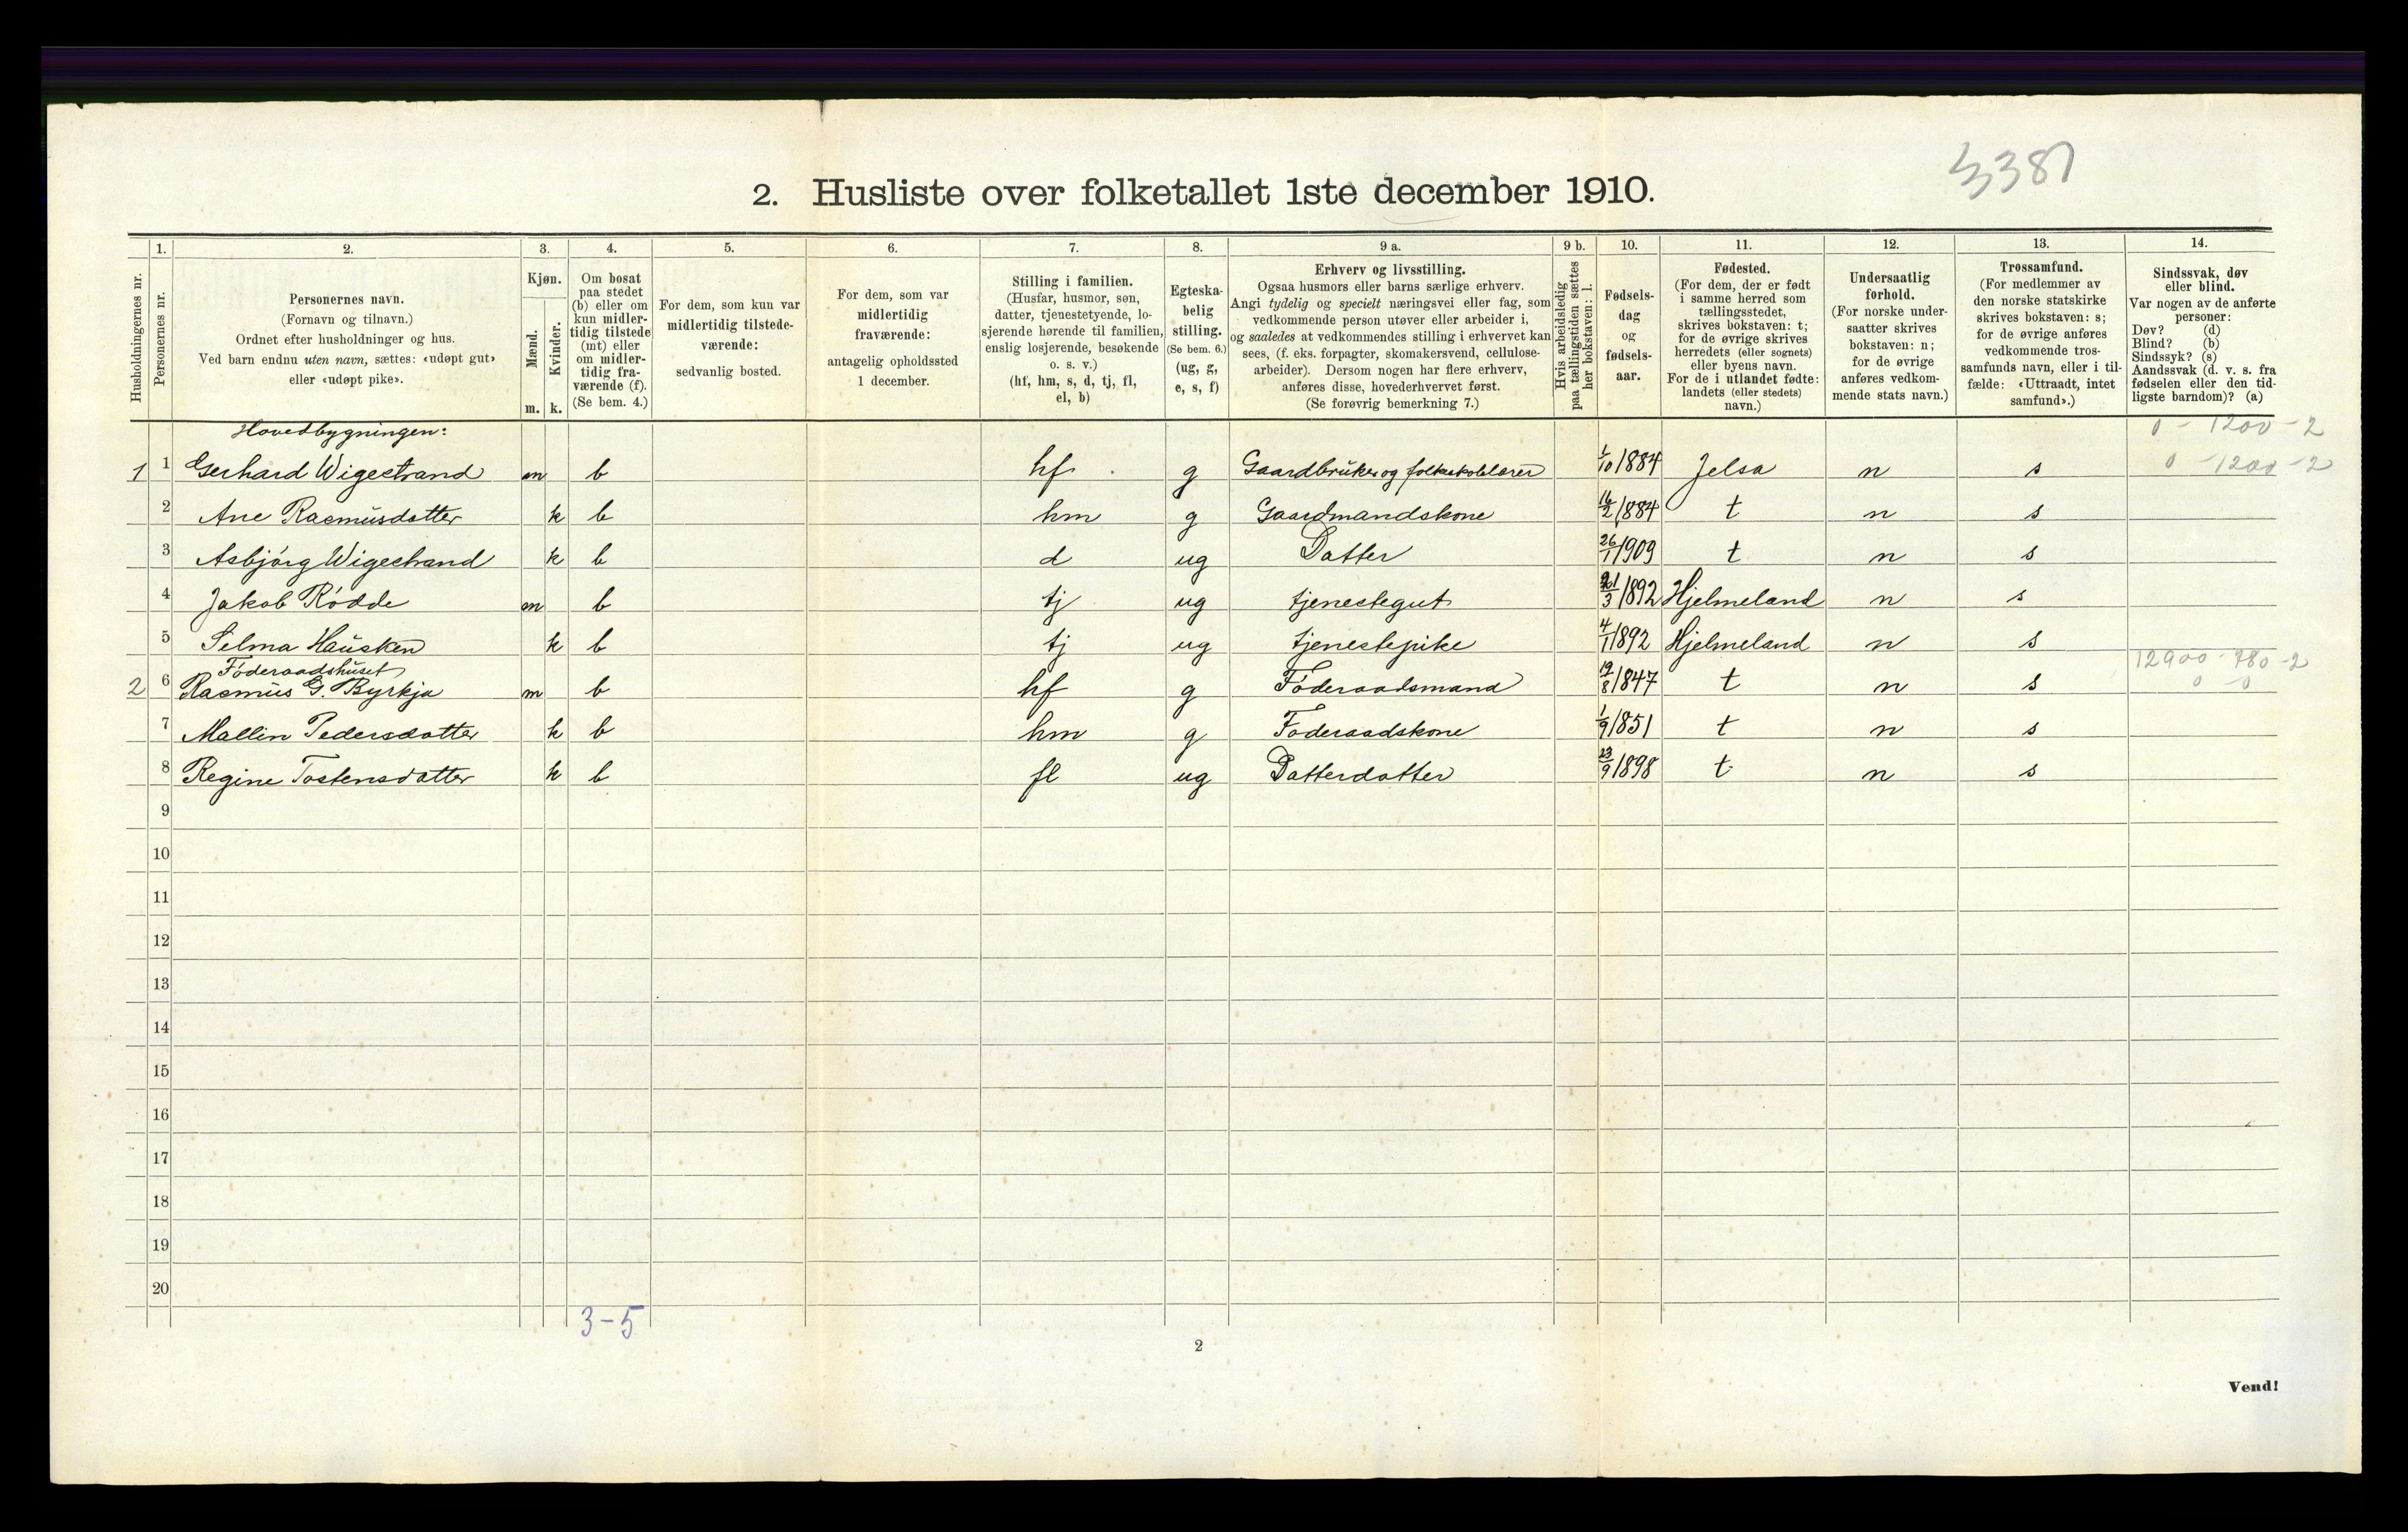 3387
2. Husliste over folketallet 1ste december 1910.
Husholdningernes nr.
1. Personernes nr.
2. Personernes navn.
(Fornavn og tilnavn.)
Ordnet efter husholdninger og hus.
Ved barn endnu uten navn, sættes: «udøpt gut»
eller «udøpt pike».
3. Kjøn.
Mænd. Kvinder.
m. k.
4. Om bosat
paa stedet
(b) eller om
kun midler-
tidig tilstede
(mt) eller
om midler-
tidig fra-
værende (f).
(Se bem. 4.)
5. For dem, som kun var
midlertidig tilstede-
værende:
sedvanlig bosted.
6. For dem, som var
midlertidig
fraværende:
antagelig opholdssted
1 december.
7. Stilling i familien.
(Husfar, husmor, søn,
datter, tjenestetyende, lo-
sjerende hørende til familien,
enslig losjerende, besøkende
o. s. v.)
(hf, hm, s, d, tj, fl,
el, b)
8. Egteska-
belig
stilling.
(Se bem. 6.)
(ug, g,
e, s, f)
9 a. Erhverv og livsstilling.
Ogsaa husmors eller barns særlige erhverv.
Angi tydelig og specielt næringsvei eller fag, som
vedkommende person utøver eller arbeider i,
og saaledes at vedkommendes stilling i erhvervet kan
sees, (f. eks. forpagter, skomakersvend, cellulose-
arbeider). Dersom nogen har flere erhverv,
anføres disse, hovederhvervet først.
(Se forøvrig bemerkning 7.)
9 b. Hvis arbeidsledig
paa tællingstiden sættes
her bokstaven: l.
10. Fødsels-
dag
og
fødsels-
aar.
11. Fødested.
(For dem, der er født
i samme herred som
tællingsstedet,
skrives bokstaven: t;
for de øvrige skrives
herredets (eller sognets)
eller byens navn.
For de i utlandet fødte:
landets (eller stedets)
navn.)
12. Undersaatlig
forhold.
(For norske under-
saatter skrives
bokstaven: n;
for de øvrige
anføres vedkom-
mende stats navn.)
13. Trossamfund.
(For medlemmer av
den norske statskirke
skrives bokstaven: s;
for de øvrige anføres
vedkommende tros-
samfunds navn, eller i til-
fælde: «Uttraadt, intet
samfund».)
14. Sindssvak, døv
eller blind.
Var nogen av de anførte
personer:
Døv? (d)
Blind? (b)
Sindssyk? (s)
Aandssvak (d. v. s. fra
fødselen eller den tid-
ligste barndom)? (a)
Hovedbygningen: 0 - 1200 - 2
1 1 Gerhard Wigestrand m b hf g Gaardbruker og folkeskolelærer 1884 Jelsa n s 0 - 1200 - 2
2 Ane Rasmusdatter k b hm g Gaardmandskone 16/2 1884 t n s
3 Asbjørg Wigestrand k b d ug Datter 26/1 1909 t n s
4 Jakob Rødde m b tj ug tjenestegut 21/3 1892 Hjelmeland n s
5 Selma Hausken k b tj ug tjenestepike 4/1 1892 Hjelmeland n s
Føderaadshuset 12900 - 780 - 2
2 6 Rasmus G. Byrkja m b hf g Føderaadsmand 19/8 1847 t n s 0 - 0
7 Mallin Pedersdatter k b hm g Føderaadskone 1/9 1851 t n s
8 Regine Tostensdatter k b fl ug Datterdatter 23/9 1898 t n s
9
10
11
12
13
14
15
16
17
18
19
20
3-5
2
Vend!